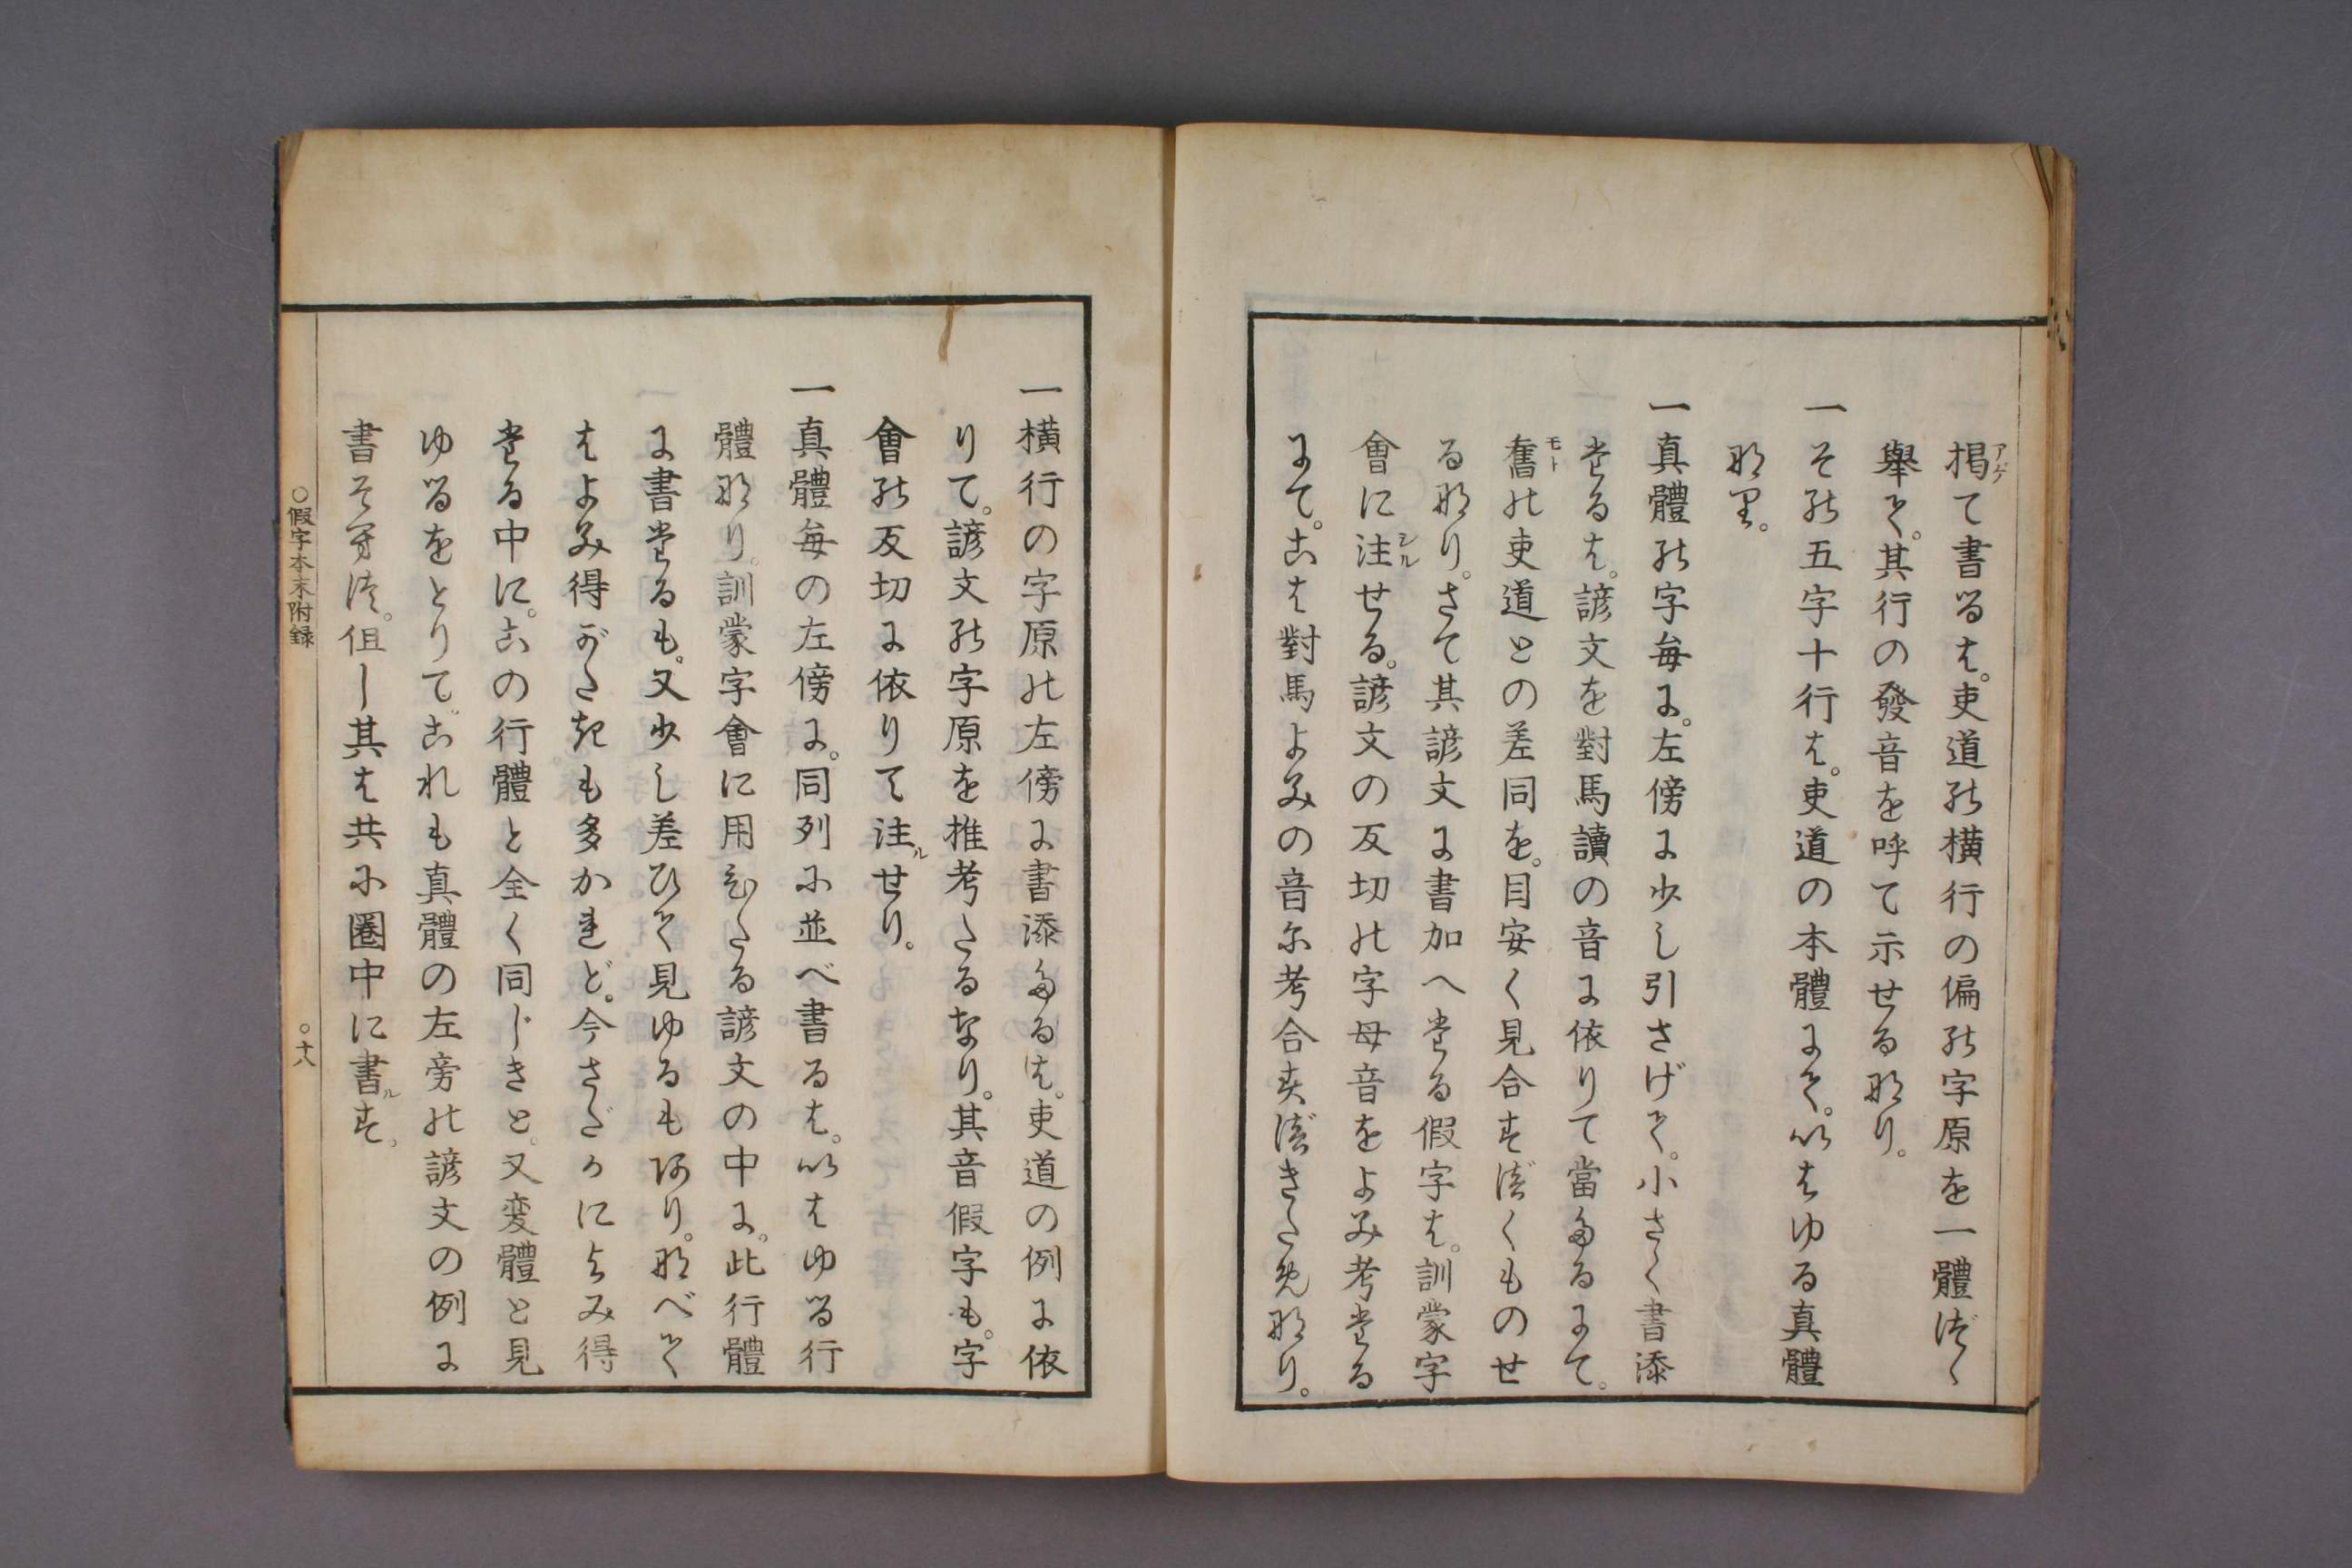 掲て書るは。吏道の横行の偏の字原を一體づゝ
アゲ
擧て。其行の發音を呼て示せる那り。
一そ能五字十行は。吏道の本體にて。いはゆる真體
那里。
一真體の字毎に。左傍に少し引さげて。小さく書添
たるは。諺文を對馬讀の音に依りて當たるにて。
舊の吏道との差同を。目安く見合すべくものせ
モト
る那り。さて其諺文に書加へたる假字は。訓蒙字
會に注せる。諺文の反切の字母音をよみ考たる
シル
にて。こは對馬よみの音に考合すべきため那り。
一横行の字原の左傍に書添たるは。吏道の例に依
りて。諺文の字原を推考たるなり。其音假字も。字
會の反切に依りて注せり。
ル
一真體毎の左傍に。同列に並べ書るは。いはゆる行
體那り。訓蒙字會に用ひたる諺文の中に。此行體
に書たるも。又少し差ひて見ゆるもあり。那べて
はよみ得がたきも多かれど。今さだかによみ得
たる中に。この行體と全く同じきと。又変體と見
ゆるをとりて。これも真體の左旁の諺文の例に
書そへつ。但し其は共に圈中に書す。
ル
○假字本末附録
○十八